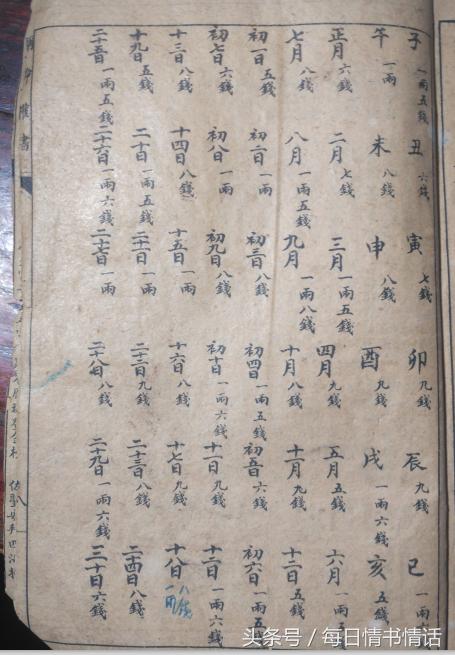 子 一兩五錢 丑 六錢 寅 七錢 卯 九錢 辰 九錢 巳 一兩
午 一兩 未 八錢 申 八錢 酉 九錢 戌 一兩六錢 亥 五錢
正月 六錢 二月 七錢 三月 一兩五錢 四月 九錢 五月 五錢 六月 一兩五
七月 八錢 八月 一兩五錢 九月 一兩八錢 十月 八錢 十一月 九錢 十二月 五錢
初一日 五錢 初二日 一兩 初三日 八錢 初四日 一兩五錢 初五日 六錢 初六日 一兩五錢
初七日 六錢 初八日 一兩 初九日 八錢 初十日 一兩六錢 十一日 九錢 十二日 一兩六錢
十三日 八錢 十四日 八錢 十五日 一兩 十六日 八錢 十七日 九錢 十八日 八錢
十九日 五錢 二十日 一兩五錢 二十一日 一兩 二十二日 九錢 二十三日 八錢 二十四日 八錢
二十五日 一兩五錢 二十六日 一兩六錢 二十七日 一兩 二十八日 八錢 二十九日 一兩六錢 三十日 六錢
書
头条号 / 每日情书情话